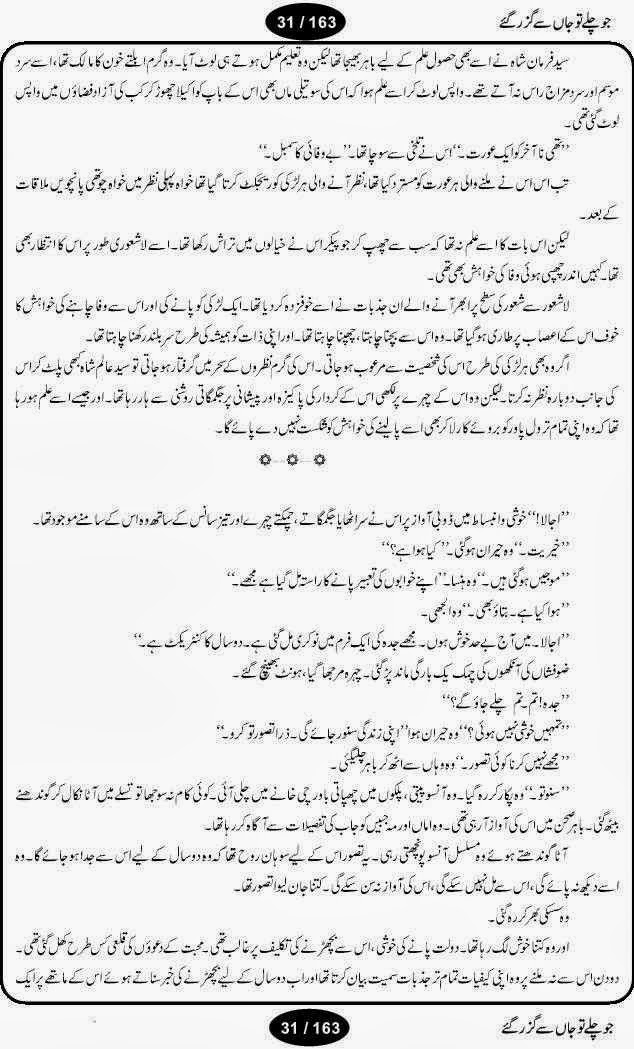 جو چلے تو جاں سے گزر گئے
31 / 163
سید فرمان شاہ نے اسے بھی حصول علم کے لیے باہر بھیجا تھا لیکن وہ تعلیم مکمل ہوتے ہی لوٹ آیا۔ وہ گرم ابلتے خون کا مالک تھا، اسے سرد
موسم اور سرد مزاج راس نہ آتے تھے۔ واپس لوٹ کر اسے علم ہوا کہ اس کی سوتیلی ماں بھی اس کے باپ کو اکیلا چھوڑ کر کب کی آزاد فضاؤں میں واپس
لوٹ گئی تھی۔
’’تھی نا آخر کو ایک عورت۔‘‘ اس نے تلخی سے سوچا تھا۔ ’’بے وفائی کا سمبل۔‘‘
تب اس نے ملنے والی ہر عورت کو مسترد کیا تھا، نظر آنے والی ہر لڑکی کو ریجیکٹ کرتا گیا تھا خواہ پہلی نظر میں خواہ چوتھی پانچویں ملاقات
کے بعد۔
لیکن اس بات کا اسے علم نہ تھا کہ سب سے چھپ کر جو پیکر اس نے خیالوں میں تراش رکھا تھا۔ اسے لاشعوری طور پر اس کا انتظار بھی
تھا۔ کہیں اندر چھپی ہوئی وفا کی خواہش بھی تھی۔
لاشعور سے شعور کی سطح پر ابھر آنے والے ان جذبات نے اسے خوفزدہ کر دیا تھا۔ ایک لڑکی کو پانے کی اور اس سے وفا چاہنے کی خواہش کا
خوف اس کے اعصاب پر طاری ہو گیا تھا۔ وہ اس سے بچنا چاہتا، چھپنا چاہتا تھا۔ اور اپنی ذات کو ہمیشہ کی طرح سربلند رکھنا چاہتا تھا۔
اگر وہ بھی ہر لڑکی کی طرح اس کی شخصیت سے مرعوب ہو جاتی۔ اس کی گرم نظروں کے سحر میں گرفتار ہو جاتی تو سید عالم شاہ کبھی پلٹ کر اس
کی جانب دوبارہ نظر نہ کرتا۔ لیکن وہ اس کے چہرے پر لکھی اس کے کردار کی پاکیزہ اور پیشانی پر جگمگاتی روشنی سے ہار رہا تھا۔ اور جیسے اسے علم ہو رہا
تھا کہ وہ اپنی تمام تر ول پاور کو بروئے کار لا کر بھی اسے پا لینے کی خواہش کو شکست نہیں دے پائے گا۔
’’اجالا!‘‘ خوشی و انبساط میں ڈوبی آواز پر اس نے سر اٹھایا جگمگاتے، چمکتے چہرے اور تیز سانس کے ساتھ وہ اس کے سامنے موجود تھا۔
’’خیریت۔‘‘ وہ حیران ہو گئی۔ ’’کیا ہوا ہے؟‘‘
’’موجیں ہو گئی ہیں۔‘‘ وہ ہنسا۔ ’’اپنے خوابوں کی تعبیر پانے کا راستہ مل گیا ہے مجھے۔‘‘
’’ہوا کیا ہے۔ بتاؤ بھی۔‘‘ وہ الجھی۔
’’اجالا۔ میں آج بے حد خوش ہوں۔ مجھے جدہ کی ایک فرم میں نوکری مل گئی ہے۔ دو سال کا کنٹریکٹ ہے۔‘‘
ضوفشاں کی آنکھوں کی چمک یک بارگی ماند پڑ گئی۔ چہرہ مرجھا گیا، ہونٹ بھینچ گئے۔
’’جدہ! تم۔ تم چلے جاؤ گے؟‘‘
’’تمہیں خوشی نہیں ہوئی؟‘‘ وہ حیران ہوا ’’اپنی زندگی سنور جائے گی۔ ذرا تصور تو کرو۔‘‘
’’مجھے نہیں کرنا کوئی تصور۔‘‘ وہ وہاں سے اٹھ کر باہر چلی گئی۔
’’سنو تو۔‘‘ وہ پکار کر رہ گیا۔ وہ آنسو پیتی، پلکوں میں چھپاتی باورچی خانے میں چلی آئی۔ کوئی کام نہ سوجھا تو تسلے میں آٹا نکال کر گوندھنے
بیٹھ گئی۔ باہر صحن میں اس کی آواز آ رہی تھی۔ وہ اماں اور مہ جبیں کو جاب کی تفصیلات سے آگاہ کر رہا تھا۔
آٹا گوندھتے ہوئے وہ مسلسل آنسو پونچھتی رہی۔ یہ تصور اس کے لیے سوہان روح تھا کہ وہ دو سال کے لیے اس سے جدا ہو جائے گا۔ وہ
اسے دیکھ نہ پائے گی، اس سے مل نہیں سکے گی، اس کی آواز نہ سن سکے گی۔ کتنا جان لیوا تصور تھا۔
وہ سسکی بھر کر رہ گئی۔
اور وہ کتنا خوش لگ رہا تھا۔ دولت پانے کی خوشی، اس سے بچھڑنے کی تکلیف پر غالب تھی۔ محبت کے دعوؤں کی قلعی کس طرح کھل گئی تھی۔
دو دن اس سے نہ ملنے پر وہ اپنی کیفیات تمام تر جذبات سمیت بیان کرتا تھا اور اب دو سال کے لیے بچھڑنے کی خبر سناتے ہوئے اس کے ماتھے پر ایک
جو چلے تو جاں سے گزر گئے
31 / 163